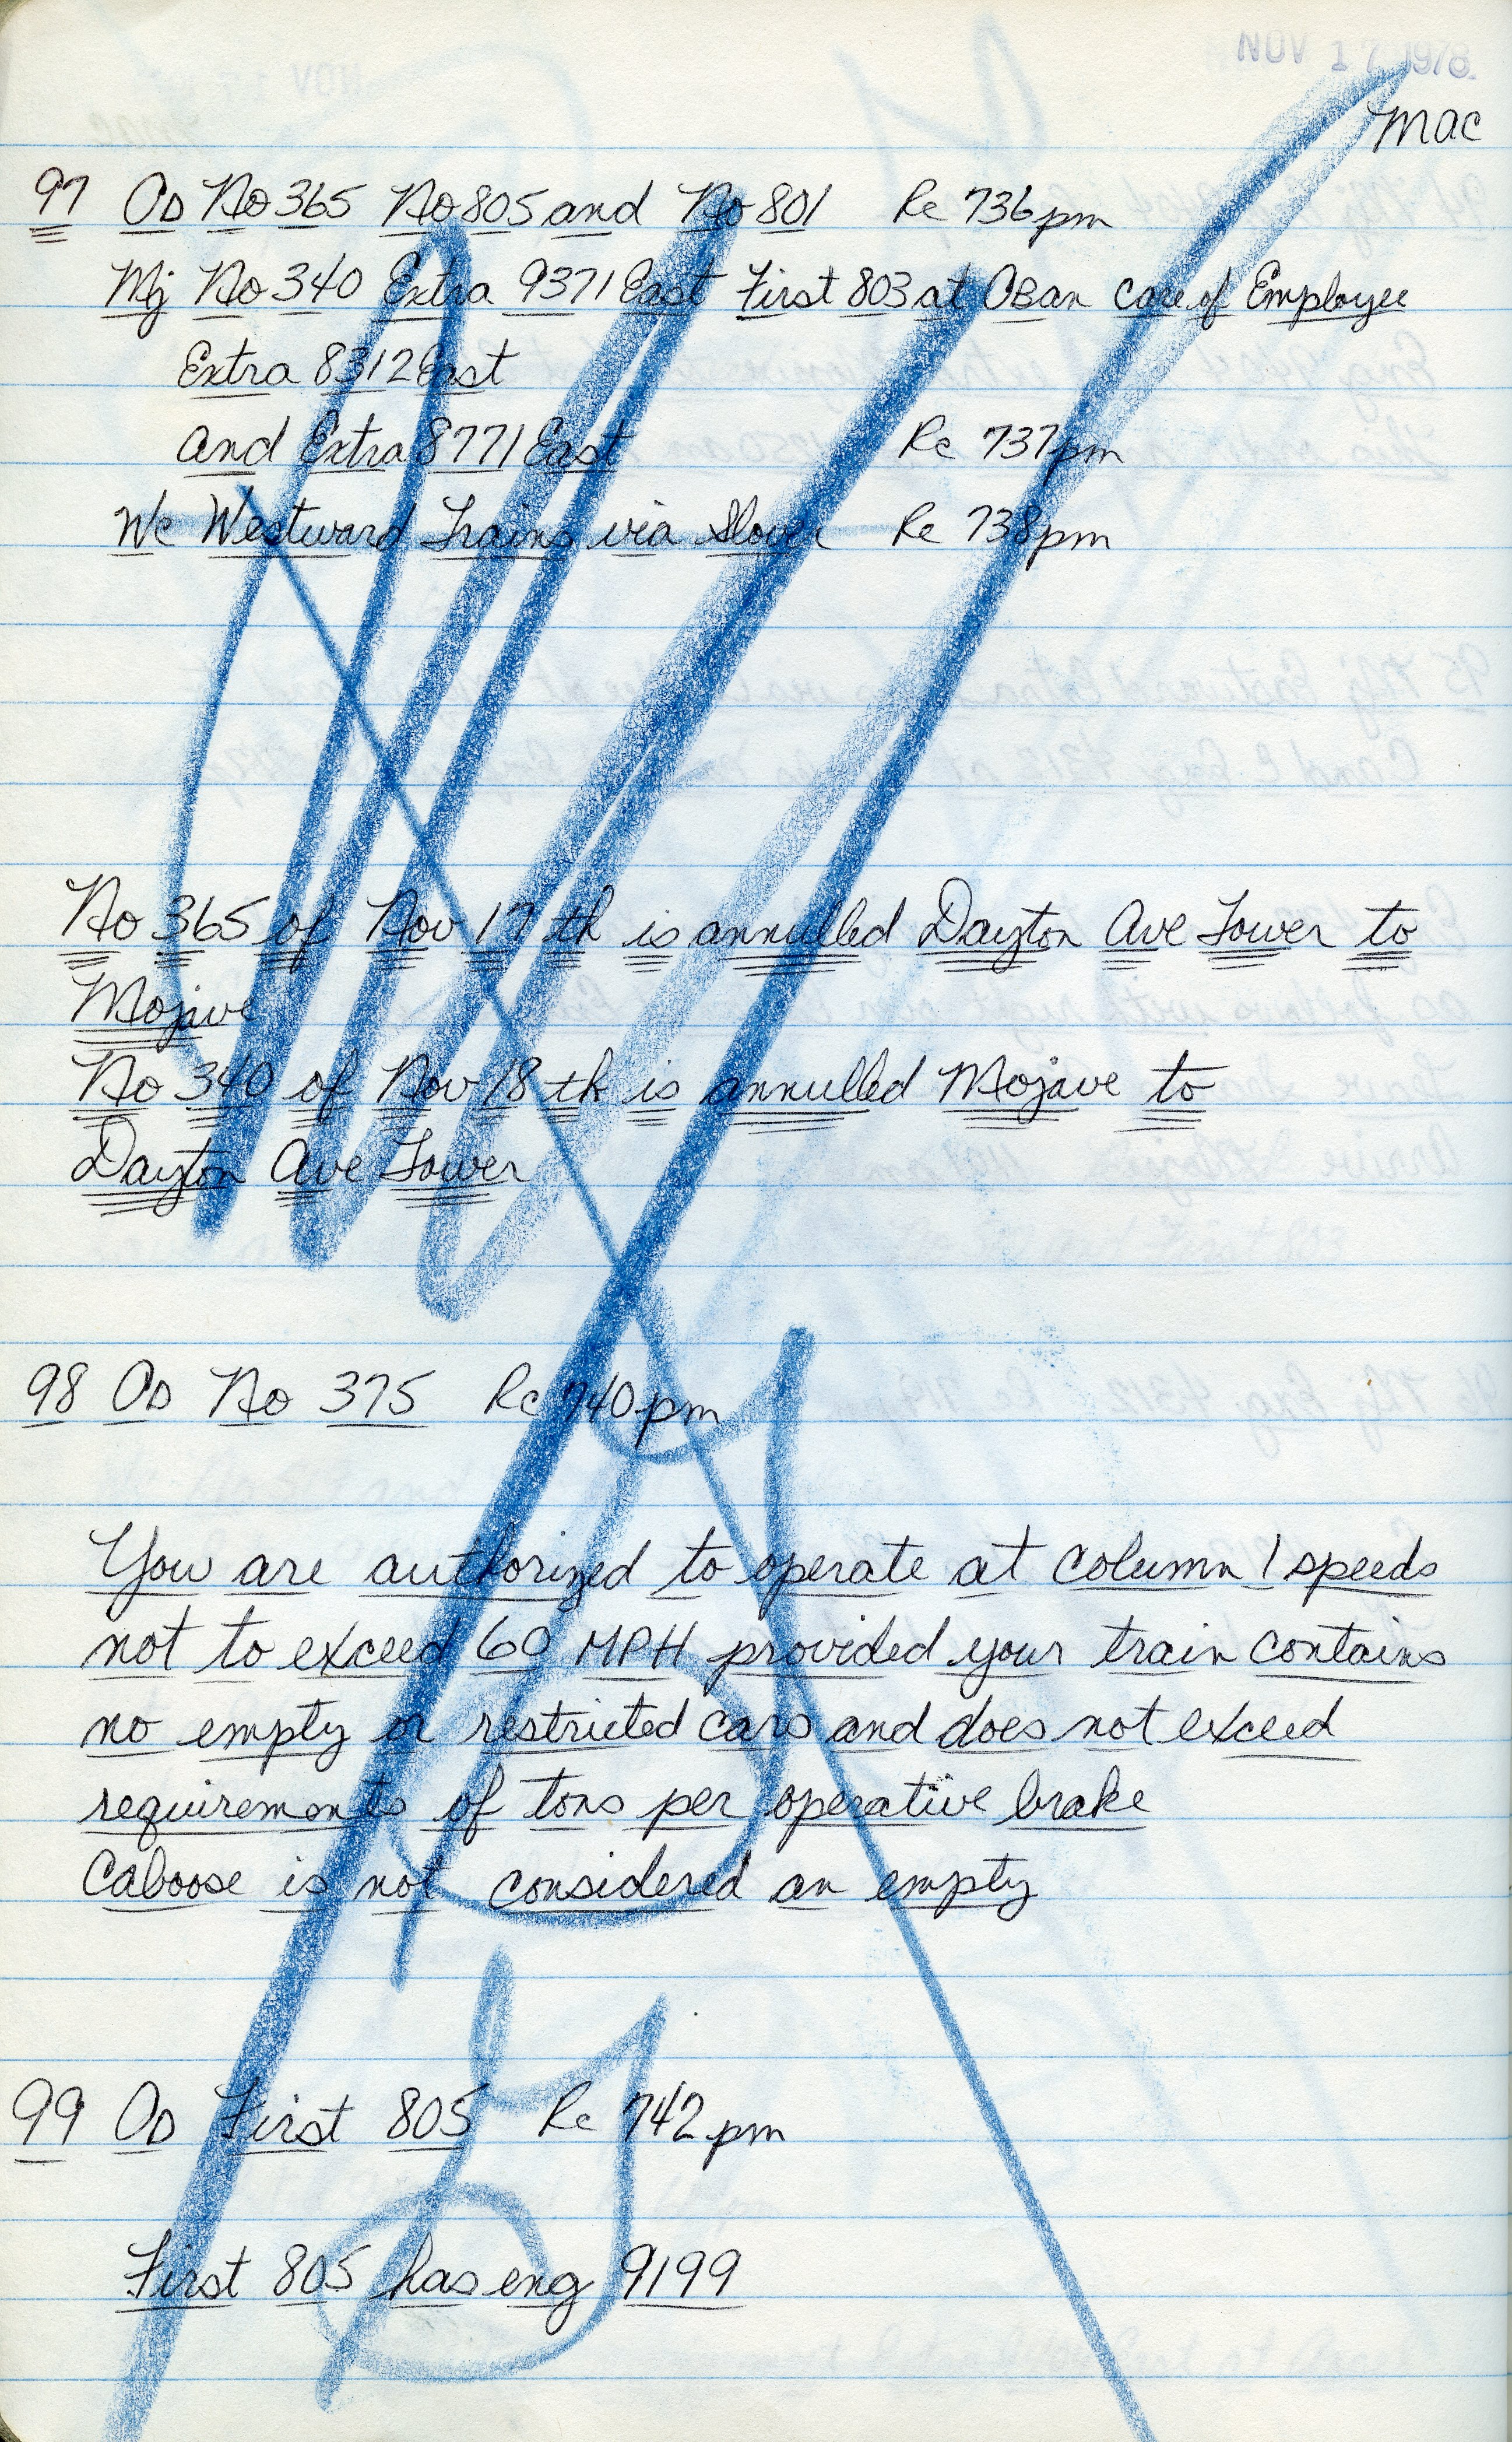 NOV 17 1978
mac
97 OD No 365 No 805 and No 801 Rc 736 pm
Mj No 340 Extra 9371 East First 803 at OBan care of Employee
Extra 8312 East
and Extra 8771 East Rc 737 pm
Wc Westward Trains via Slover Rc 738 pm
No 365 of Nov 17 th is annulled Dayton Ave Tower to
Mojave
No 340 of Nov 18 th is annulled Mojave to
Dayton Ave Tower
98 OD No 375 Rc 740 pm
You are authorized to operate at column 1 speeds
not to exceed 60 MPH provided your train contains
no empty or restricted cars and does not exceed
requirements of tons per operative brake
Caboose is not considered an empty
99 OD First 805 Rc 742 pm
First 805 has eng 9199